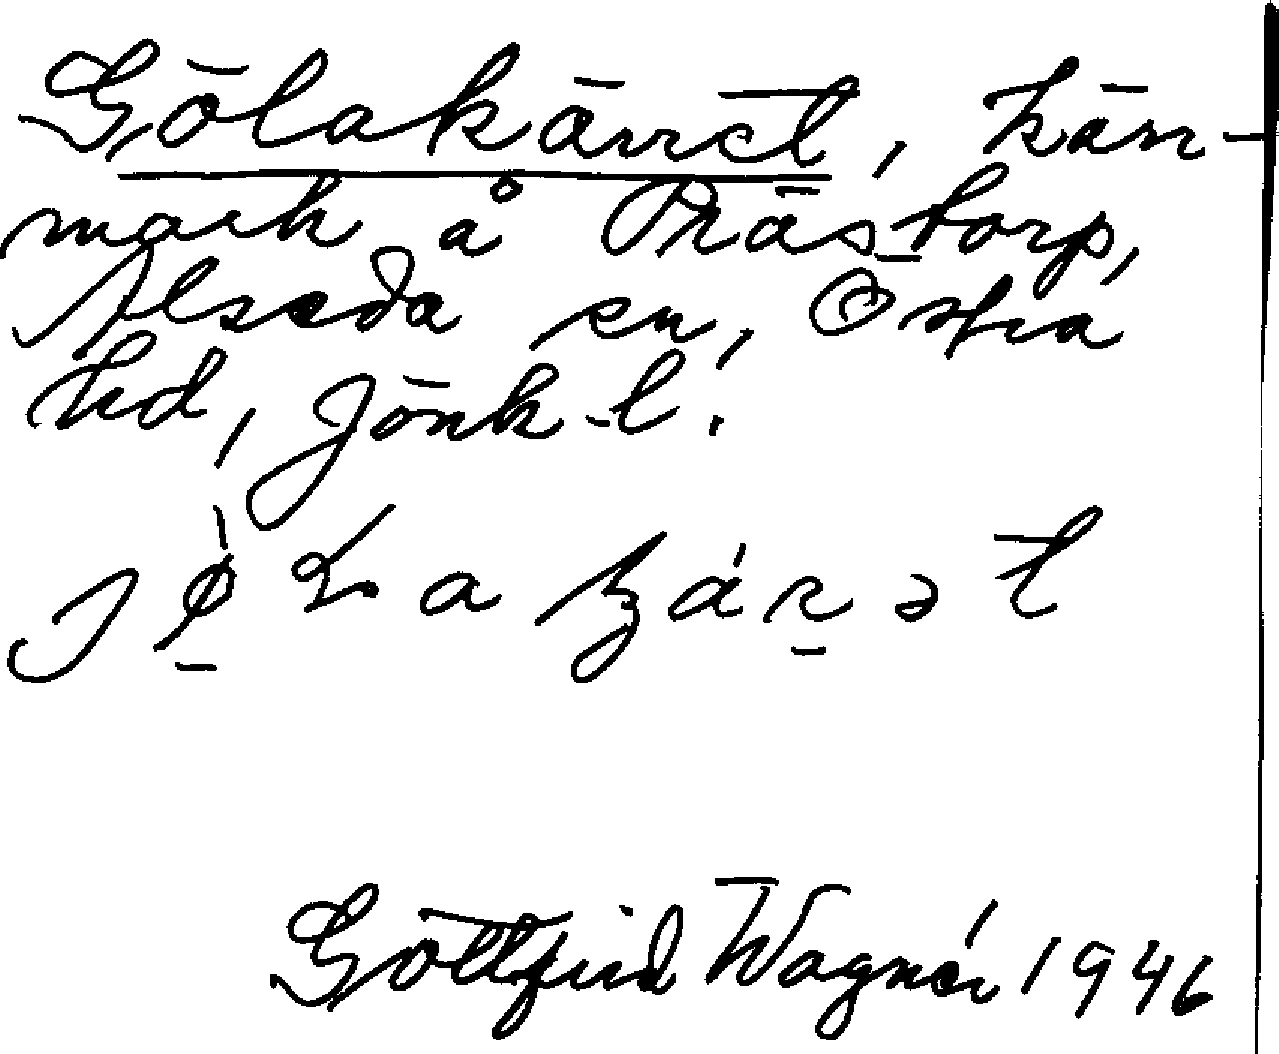 Gölakärret, kärr-
mark å Prästorp,
Alseda sn, Östra
hd, Jönk-l.
Gottfrid Wagnér 1946